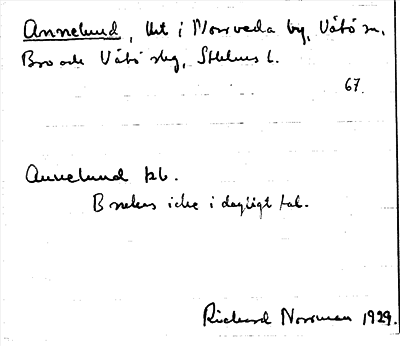 Annelund, lht i Norrveda by, Vätö sn,
Bro och Vätö skg, Sthlms l.
67
Annelund pb.
Brukas icke i dagligt tal.
Richard Norrman 1929.